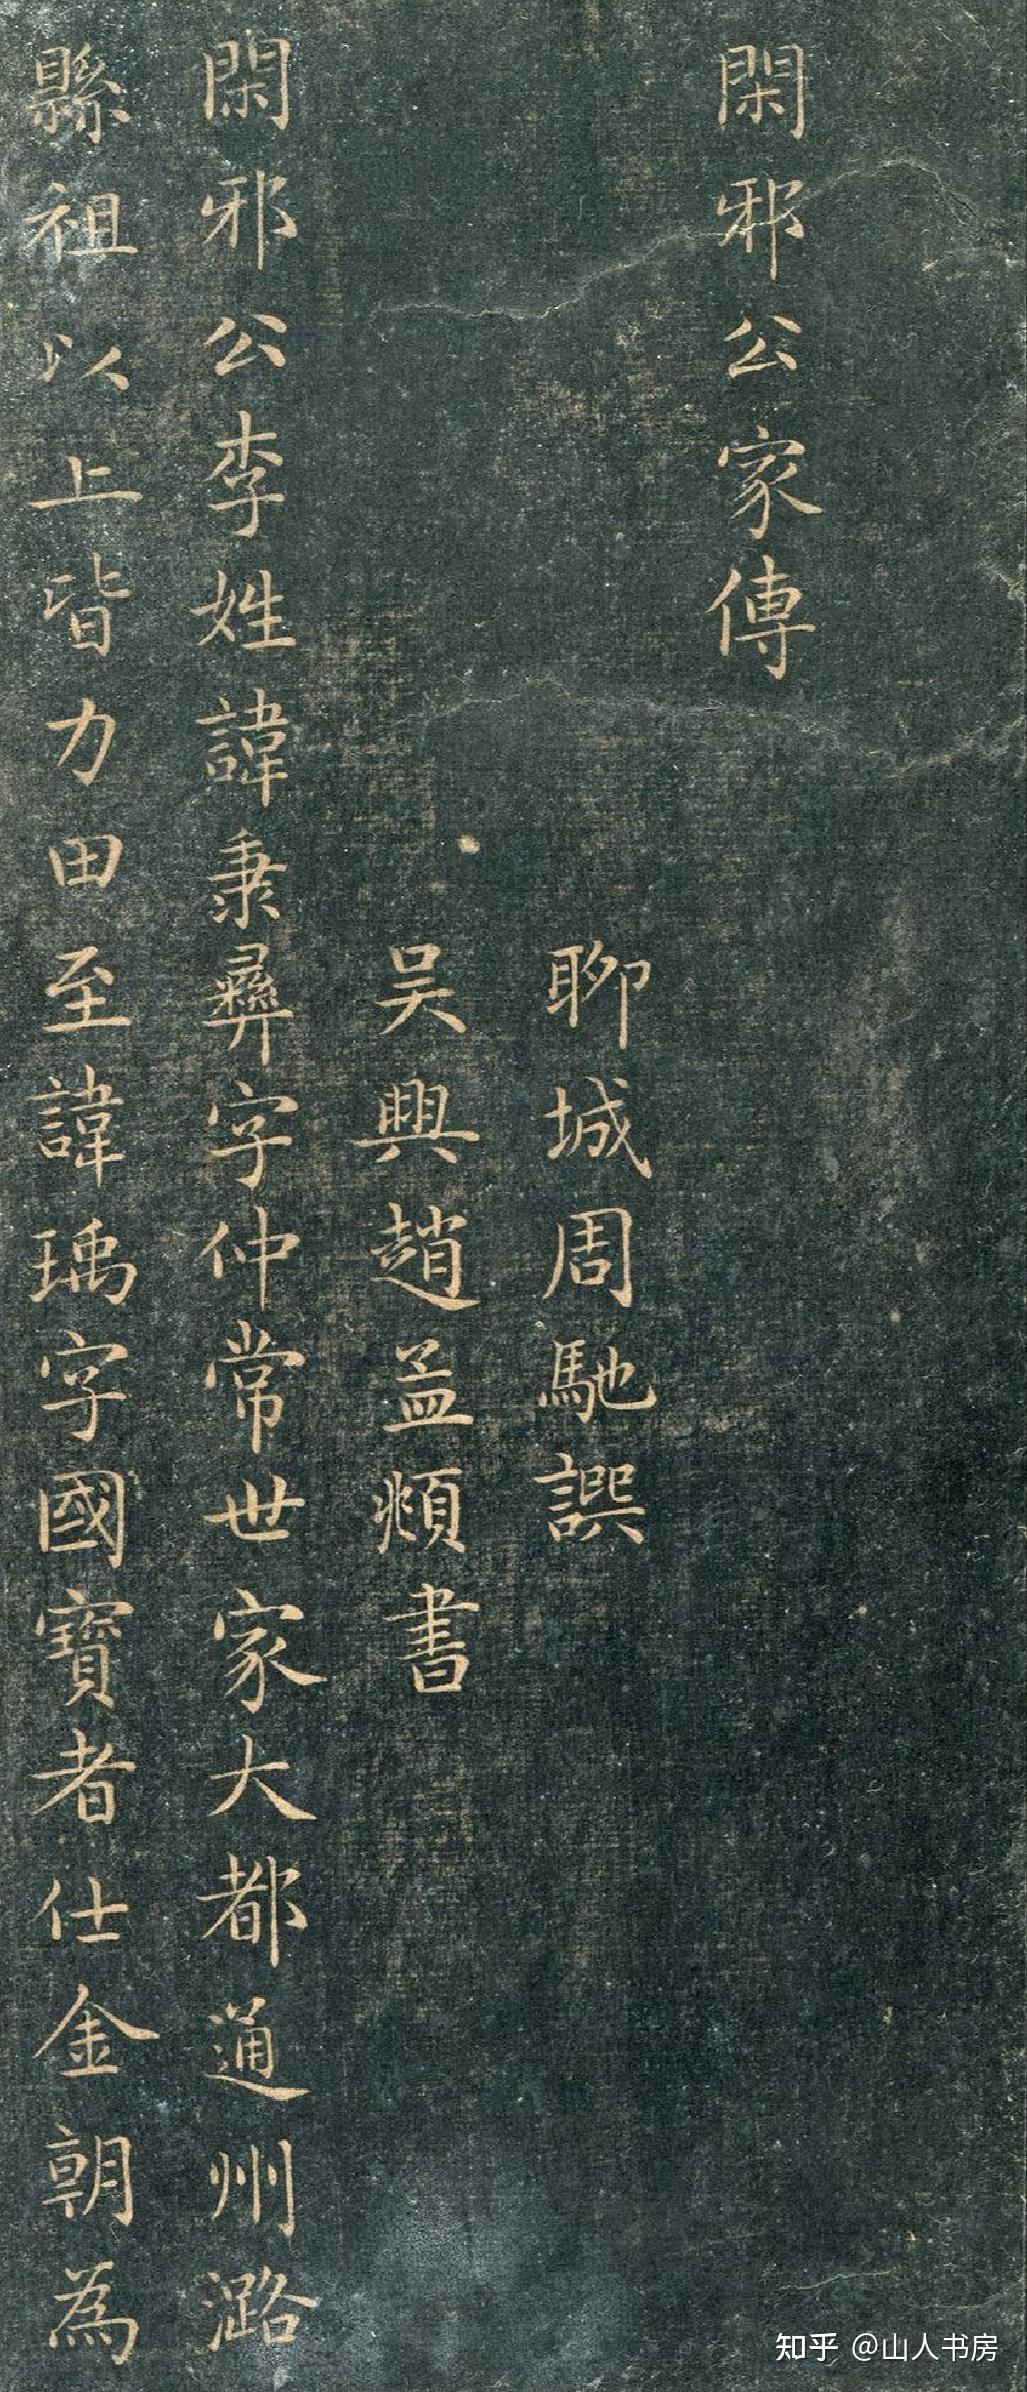 閑邪公家傳
聊城周馳譔
吴興趙孟頫書
閑邪公李姓諱秉彝字仲常世家大都通州潞
縣祖以上皆力田至諱瑀字國寶者仕金朝為
知乎 @山人书房